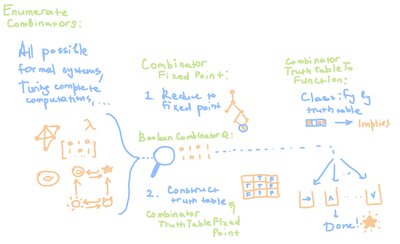 Enumerate
Combinators:
All possible
formal systems,
Turing complete
computations,...
λ
Combinator
Fixed Point:
1. Reduce to
fixed point
Boolean Combinator Q:
2. Construct
truth table
Combinator
TruthTable Fixed
Point
Combinator
Truth Table To
Function:
Classify by
truth table
→ Implies
→ ∧ ... ∨
Done!